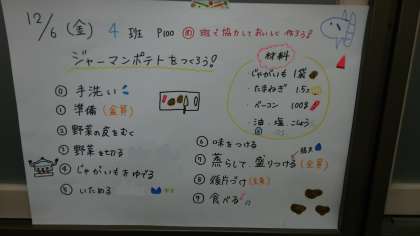 12/6 (金) 4班 P100 め 班で協力しておいしく作ろう!
ジャーマンポテトをつくろう!
材料
・じゃがいも 1袋
・たまねぎ 1.5コ
・ベーコン 100g
・油・塩・こしょう
⓪ 手洗い
① 準備(全員)
② 野菜の皮をむく
③ 野菜を切る
④ じゃがいもをゆでる
⑤ いためる
⑥ 味をつける
⑦ 蒸らして、盛りつける(全員)
⑧ 後片づけ(全員)
⑨ 食べる